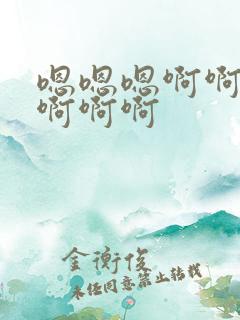 嗯嗯嗯啊啊
啊啊啊
金衡俊
未经同意禁止转载